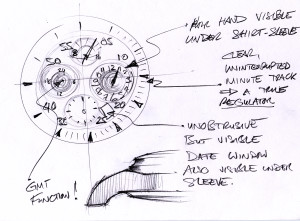 HAND VISIBLE
UNDER SHIRT-SLEEVE
CLEAR,
UNINTERRUPTED
MINUTE TRACK
A TRUE
REGULATOR
UNOBTRUSIVE
BUT VISIBLE
DATE WINDOW
ALSO VISIBLE UNDER
SLEEVE.
GMT
FUNCTION!
55
5
10
50
40
20
35
25